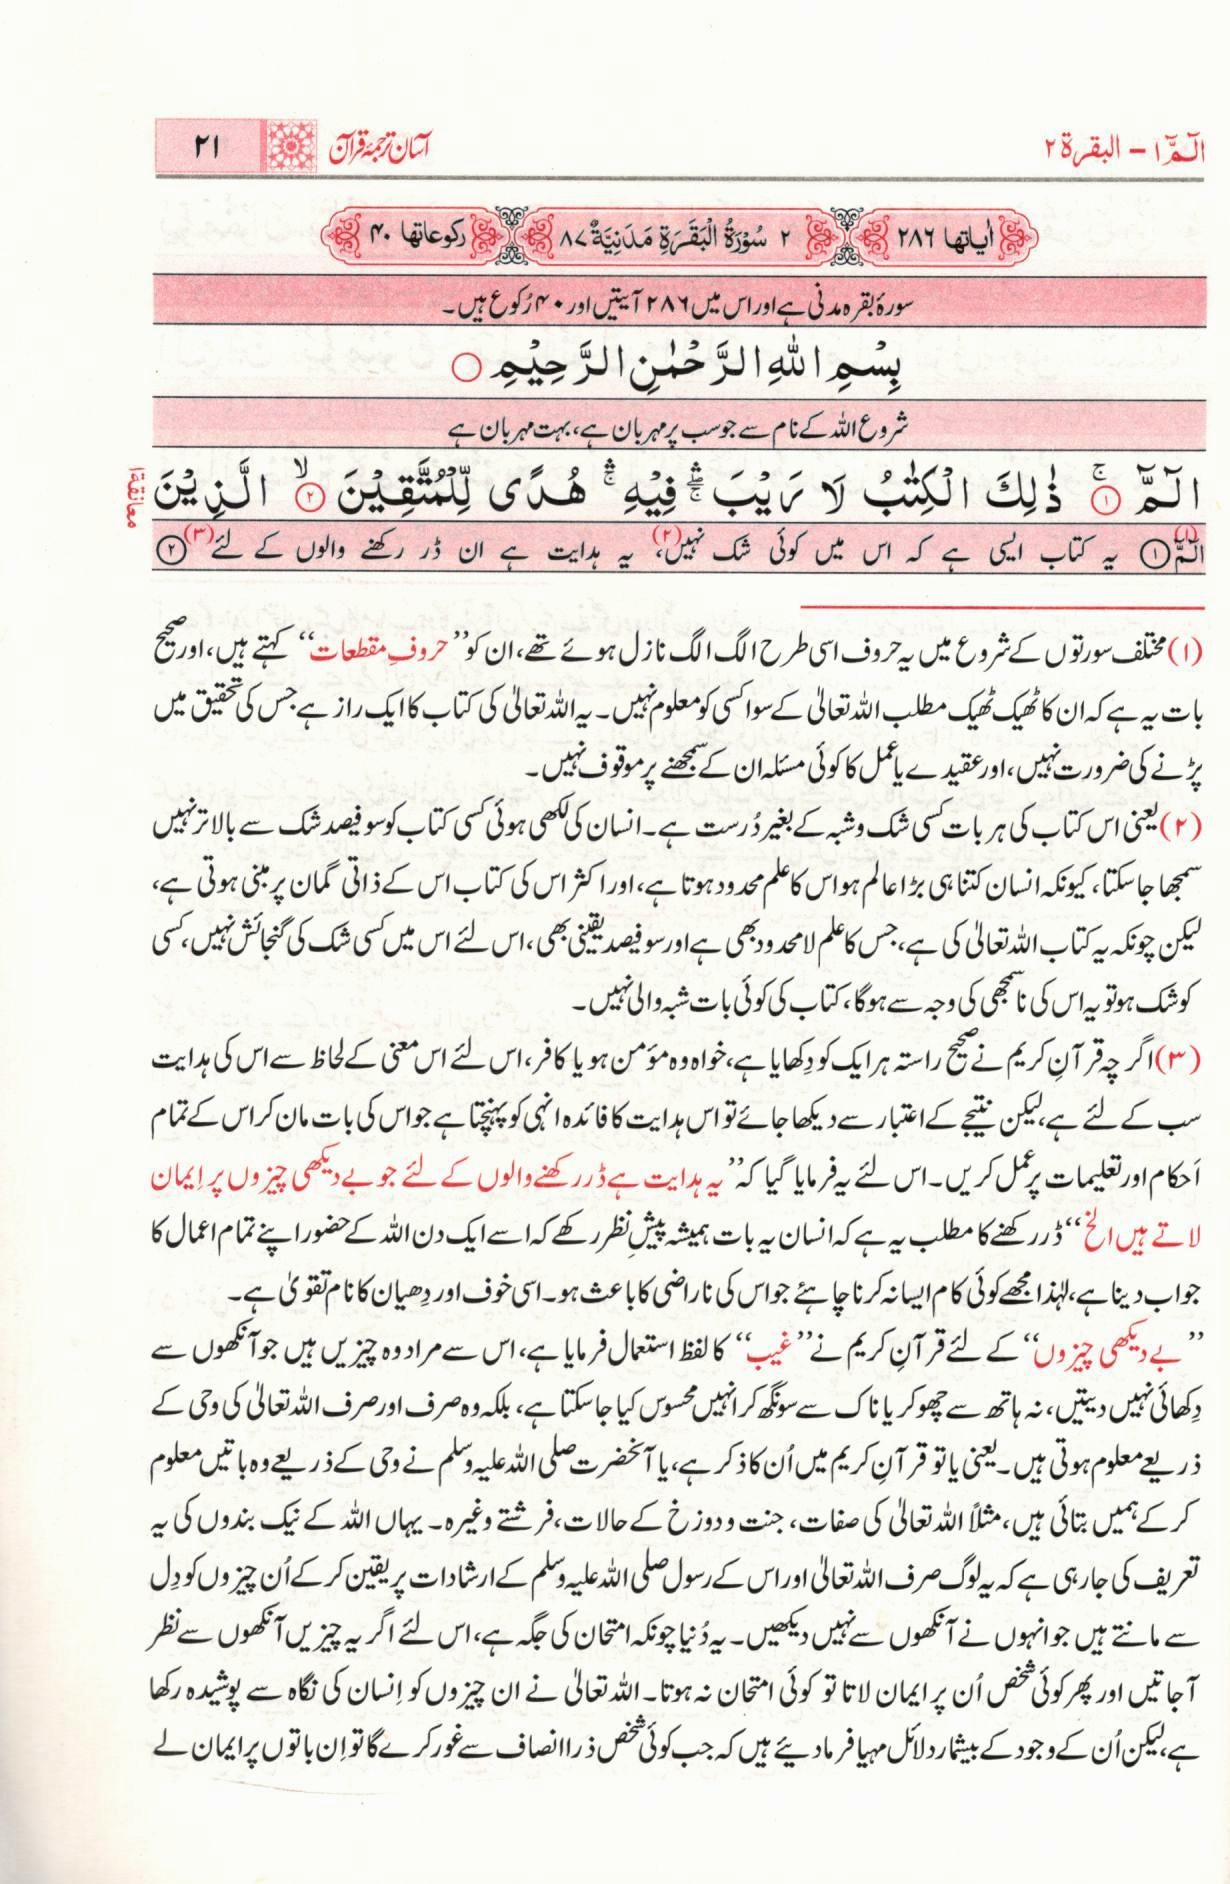 الٓمّٓ ۱ – البقرۃ ۲
آسان ترجمۂ قرآن
۲۱
اٰیاتها ۲۸۶
۲ سُوْرَةُ الْبَقَرَةِ مَدَنِيَّةٌ ۸۷
رکوعاتها ۴۰
سورۂ بقرہ مدنی ہے اور اس میں ۲۸۶ آیتیں اور ۴۰ رُکوع ہیں۔
بِسْمِ اللّٰهِ الرَّحْمٰنِ الرَّحِيْمِ ○
شروع اللہ کے نام سے جو سب پر مہربان ہے، بہت مہربان ہے
الٓمّٓ ۚ ① ذٰلِكَ الْكِتٰبُ لَا رَيْبَ ۛۖ فِيْهِ ۛۚ هُدًى لِّلْمُتَّقِيْنَ ۙ ② الَّذِيْنَ
معانقة ۱
الٓمّٓ (۱) ① یہ کتاب ایسی ہے کہ اس میں کوئی شک نہیں، (۲) یہ ہدایت ہے ان ڈر رکھنے والوں کے لئے (۳) ②
(۱) مختلف سورتوں کے شروع میں یہ حروف اسی طرح الگ الگ نازل ہوئے تھے، ان کو ”حروفِ مقطعات“ کہتے ہیں، اور صحیح
بات یہ ہے کہ ان کا ٹھیک ٹھیک مطلب اللہ تعالیٰ کے سوا کسی کو معلوم نہیں۔ یہ اللہ تعالیٰ کی کتاب کا ایک راز ہے جس کی تحقیق میں
پڑنے کی ضرورت نہیں، اور عقیدے یا عمل کا کوئی مسئلہ ان کے سمجھنے پر موقوف نہیں۔
(۲) یعنی اس کتاب کی ہر بات کسی شک و شبہ کے بغیر دُرست ہے۔ انسان کی لکھی ہوئی کسی کتاب کو سو فیصد شک سے بالاتر نہیں
سمجھا جا سکتا، کیونکہ انسان کتنا ہی بڑا عالم ہو اس کا علم محدود ہوتا ہے، اور اکثر اس کی کتاب اس کے ذاتی گمان پر مبنی ہوتی ہے،
لیکن چونکہ یہ کتاب اللہ تعالیٰ کی ہے، جس کا علم لامحدود بھی ہے اور سو فیصد یقینی بھی، اس لئے اس میں کسی شک کی گنجائش نہیں، کسی
کو شک ہو تو یہ اس کی ناسمجھی کی وجہ سے ہوگا، کتاب کی کوئی بات شبہ والی نہیں۔
(۳) اگرچہ قرآنِ کریم نے صحیح راستہ ہر ایک کو دِکھایا ہے، خواہ وہ مؤمن ہو یا کافر، اس لئے اس معنی کے لحاظ سے اس کی ہدایت
سب کے لئے ہے، لیکن نتیجے کے اعتبار سے دیکھا جائے تو اس ہدایت کا فائدہ انہی کو پہنچتا ہے جو اس کی بات مان کر اس کے تمام
اَحکام اور تعلیمات پر عمل کریں۔ اس لئے یہ فرمایا گیا کہ ”یہ ہدایت ہے ڈر رکھنے والوں کے لئے جو بے دیکھی چیزوں پر اِیمان
لاتے ہیں الخ“ ڈر رکھنے کا مطلب یہ ہے کہ انسان یہ بات ہمیشہ پیشِ نظر رکھے کہ اسے ایک دن اللہ کے حضور اپنے تمام اعمال کا
جواب دینا ہے، لہٰذا مجھے کوئی کام ایسا نہ کرنا چاہئے جو اس کی ناراضی کا باعث ہو۔ اسی خوف اور دِھیان کا نام تقویٰ ہے۔
”بے دیکھی چیزوں“ کے لئے قرآنِ کریم نے ”غیب“ کا لفظ استعمال فرمایا ہے، اس سے مراد وہ چیزیں ہیں جو آنکھوں سے
دِکھائی نہیں دیتیں، نہ ہاتھ سے چھو کر یا ناک سے سونگھ کر انہیں محسوس کیا جا سکتا ہے، بلکہ وہ صرف اور صرف اللہ تعالیٰ کی وحی کے
ذریعے معلوم ہوتی ہیں۔ یعنی یا تو قرآنِ کریم میں اُن کا ذکر ہے، یا آنحضرت صلی اللہ علیہ وسلم نے وحی کے ذریعے وہ باتیں معلوم
کر کے ہمیں بتائی ہیں، مثلاً اللہ تعالیٰ کی صفات، جنت و دوزخ کے حالات، فرشتے وغیرہ۔ یہاں اللہ کے نیک بندوں کی یہ
تعریف کی جا رہی ہے کہ یہ لوگ صرف اللہ تعالیٰ اور اس کے رسول صلی اللہ علیہ وسلم کے ارشادات پر یقین کر کے اُن چیزوں کو دِل
سے مانتے ہیں جو انہوں نے آنکھوں سے نہیں دیکھیں۔ یہ دُنیا چونکہ امتحان کی جگہ ہے، اس لئے اگر یہ چیزیں آنکھوں سے نظر
آجاتیں اور پھر کوئی شخص اُن پر ایمان لاتا تو کوئی امتحان نہ ہوتا۔ اللہ تعالیٰ نے ان چیزوں کو اِنسان کی نگاہ سے پوشیدہ رکھا
ہے، لیکن اُن کے وجود کے بیشمار دلائل مہیا فرما دیئے ہیں کہ جب کوئی شخص ذرا انصاف سے غور کرے گا تو اِن باتوں پر ایمان لے